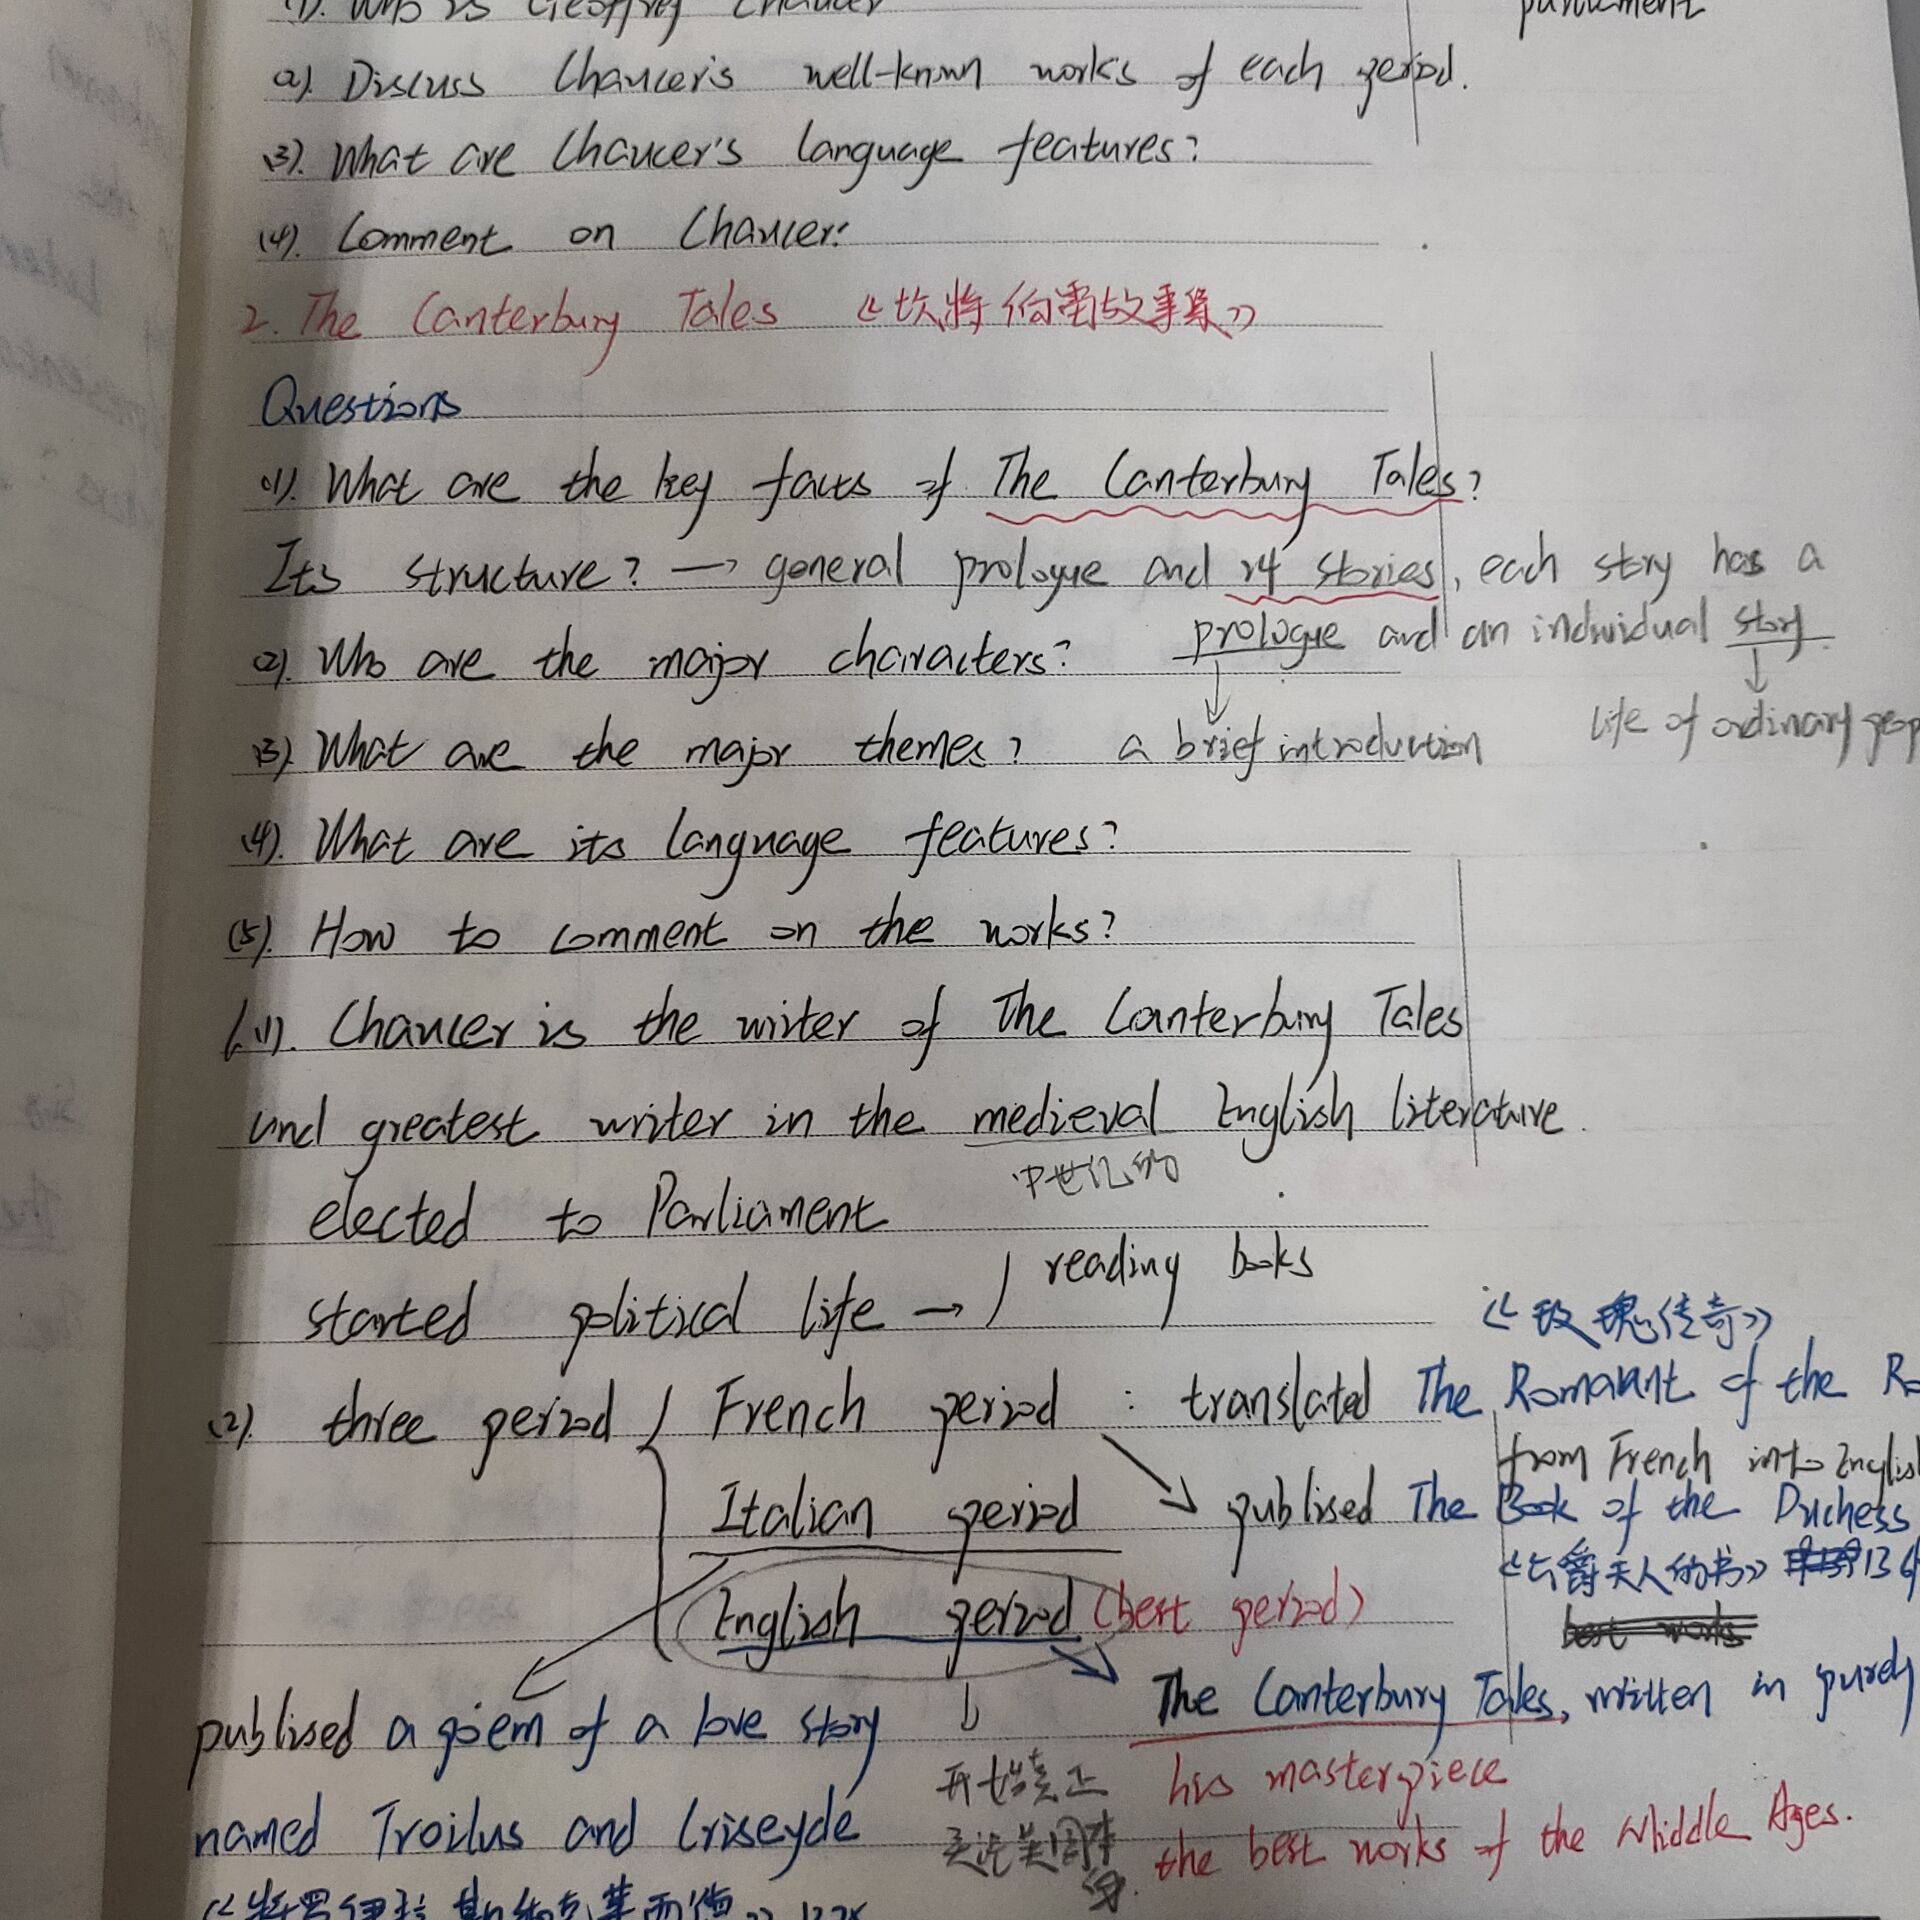 (1). Who is Geoffrey Chaucer
parliament
(2). Discuss Chaucer's well-known works of each period.
(3). What are Chaucer's language features?
(4). Comment on Chaucer.
2. The Canterbury Tales 《坎特伯雷故事集》
Questions
(1). What are the key facts of The Canterbury Tales?
Its structure? → general prologue and 24 stories, each story has a
prologue and an individual story.
(2). Who are the major characters?
life of ordinary peop
(3). What are the major themes? a brief introduction
(4). What are its language features?
(5). How to comment on the works?
1.(1). Chaucer is the writer of The Canterbury Tales
and greatest writer in the medieval English literature.
中世纪的
elected to Parliament
started political life → / reading books
《玫瑰传奇》
(2). three period { French period : translated The Romaunt of the Ro
from French into English
Italian period publised The Book of the Duchess
《公爵夫人的书》 136
English period (best period)
best works
The Canterbury Tales, written in purely
publised a poem of a love story
his masterpiece
开始真正
named Troilus and Criseyde
the best works of the Middle Ages.
《特罗伊拉斯和克莱西德》